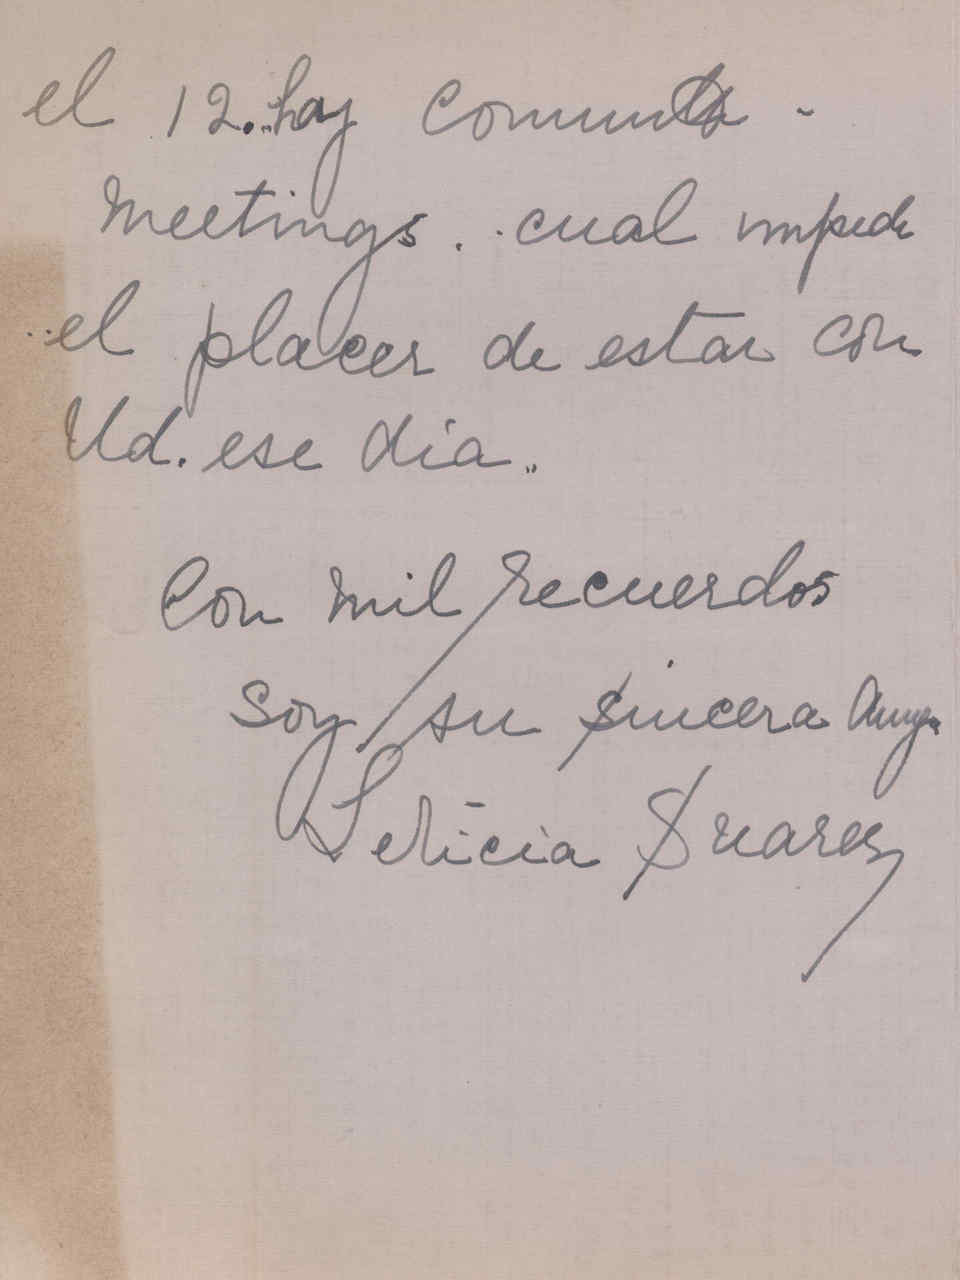 el 12. hay
meetings. cual impide
el placer de estar con
Ud. ese dia.
Con mil recuerdos
soy su sincera Amiga
Leticia Suarez